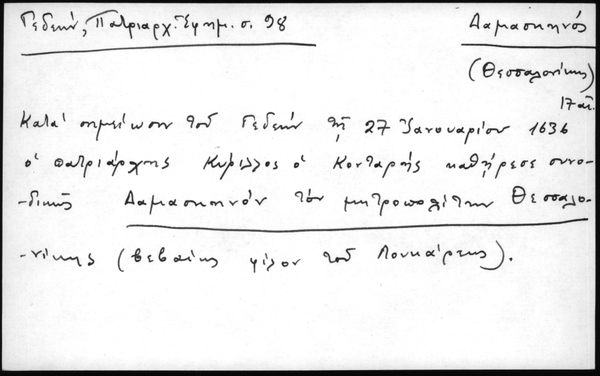 Γεδεών, Πατριαρχ. Εφημ. σ. 98
Δαμασκηνός
(Θεσσαλονίκης)
17 αι.
Κατά σημείωσιν τοῦ Γεδεών τῇ 27 Ἰανουαρίου 1636
ὁ πατριάρχης Κύριλλος ὁ Κονταρής καθῄρεσε συνο-
-δικῶς Δαμασκηνόν τόν μητροπολίτην Θεσσαλο-
-νίκης (βεβαίως φίλον τοῦ Λουκάρεως).